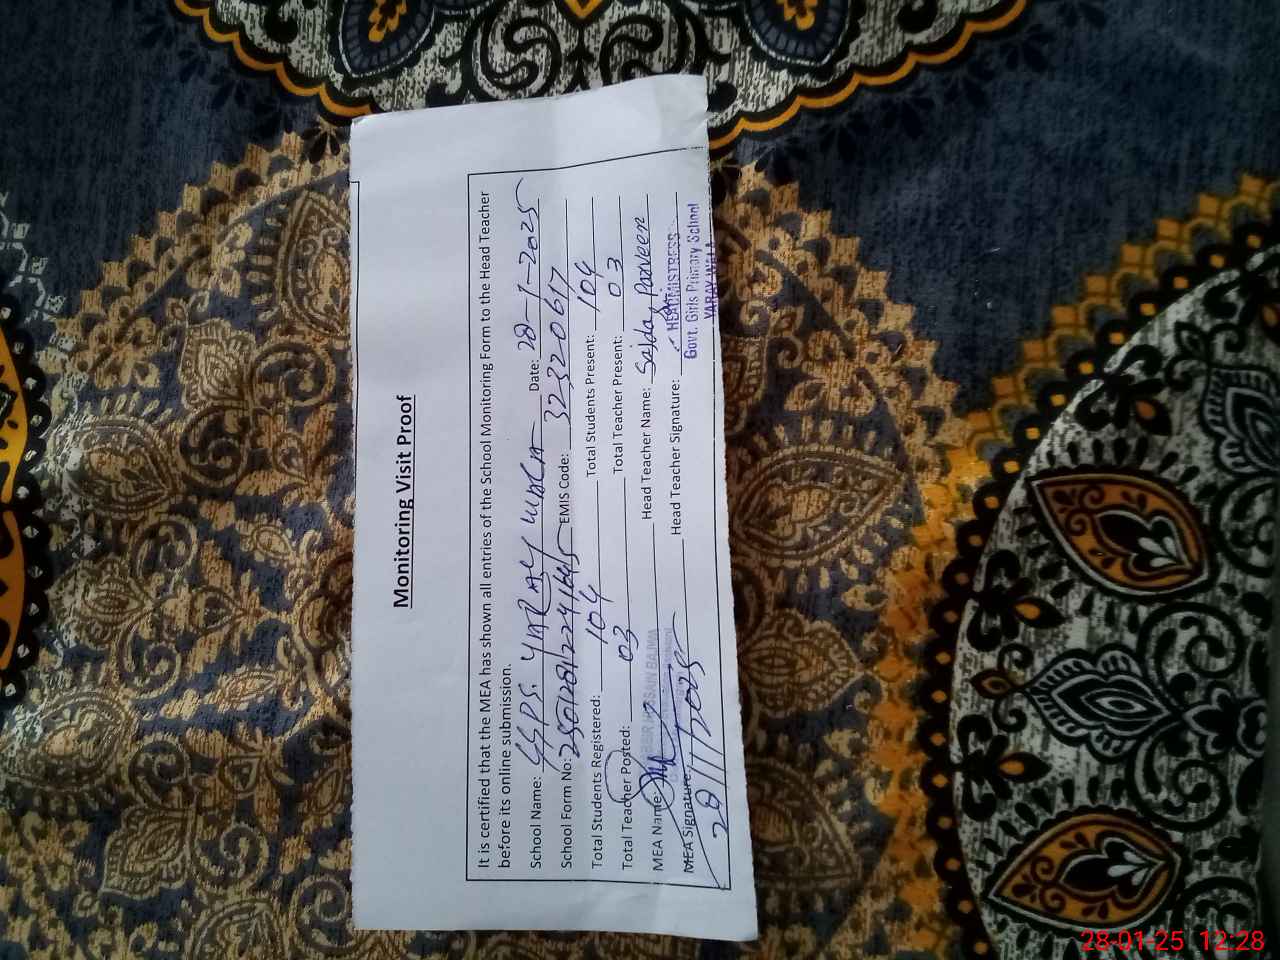 Monitoring Visit Proof
It is certified that the MEA has shown all entries of the School Monitoring Form to the Head Teacher
before its online submission.
School Name: GGPS. Date: 28-1-2025
School Form No: EMIS Code: 32320617
Total Students Registered: 104 Total Students Present: 104
Total Teacher Posted: 03 Total Teacher Present: 03
MEA Name: Head Teacher Name: Sajda Parveen
MEA Signature: Head Teacher Signature:
28/1/2025
HUSSAIN BAJWA
HEADMISTRESS
Govt. Girls Primary School
YARAY WALA
28-01-25 12:28